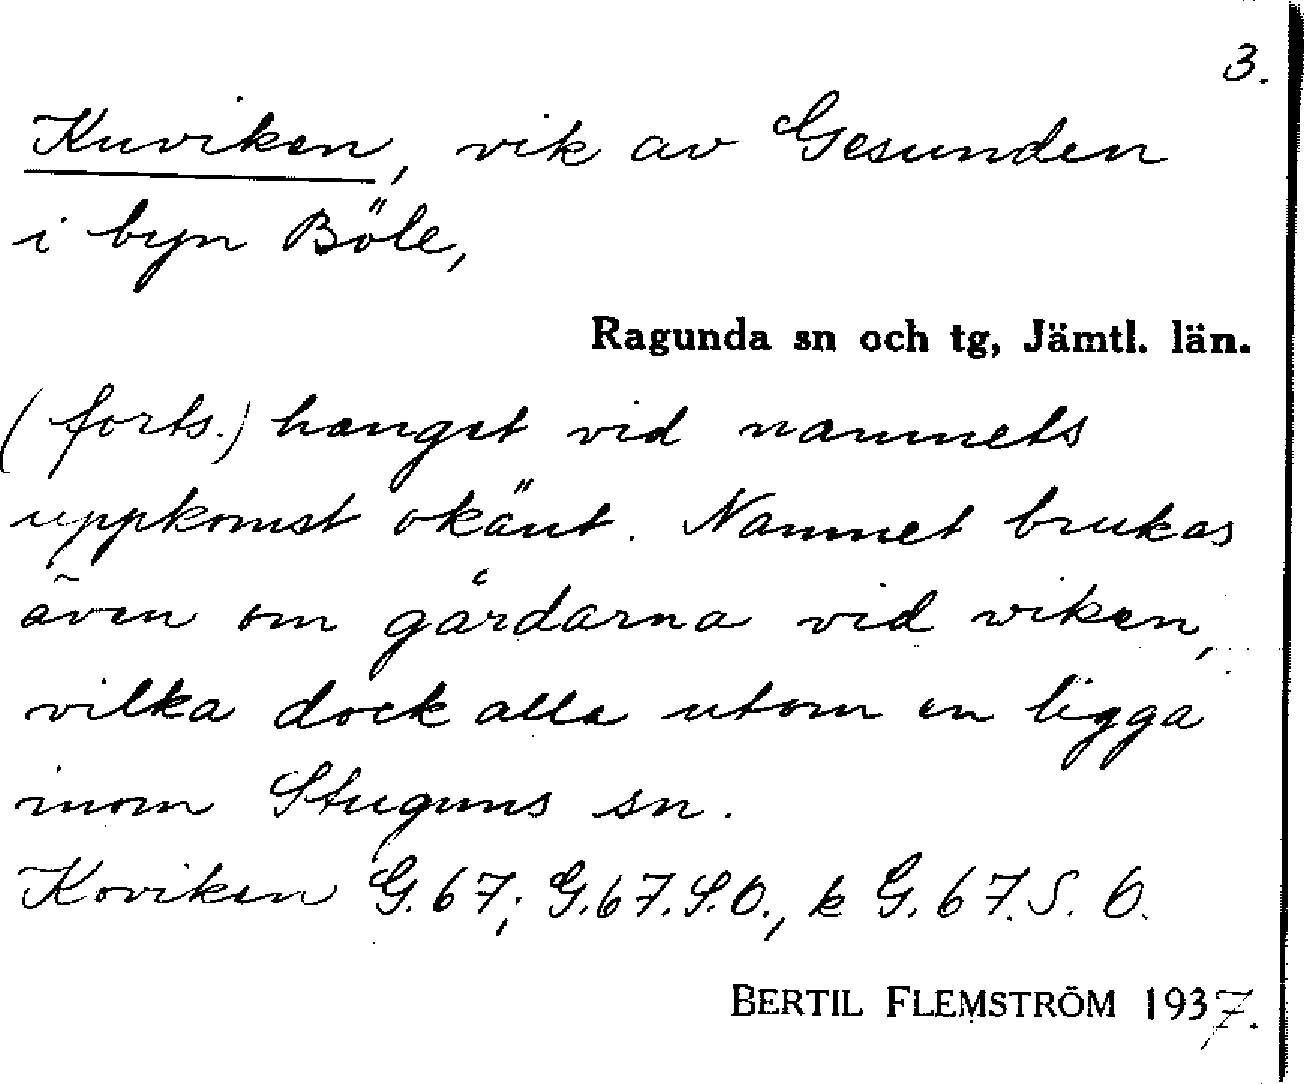 3.
Kuviken, vik av Gesunden
i byn Böle,
Ragunda sn och tg, Jämtl. län.
(forts.) hanget vid namnets
uppkomst okänt. Namnet brukas
även om gårdarna vid viken,
vilka dock alla utom en ligga
inom Stuguns sn.
Koviken G.67; G.67.S.O., k G.67.S.O.
BERTIL FLEMSTRÖM 1937.